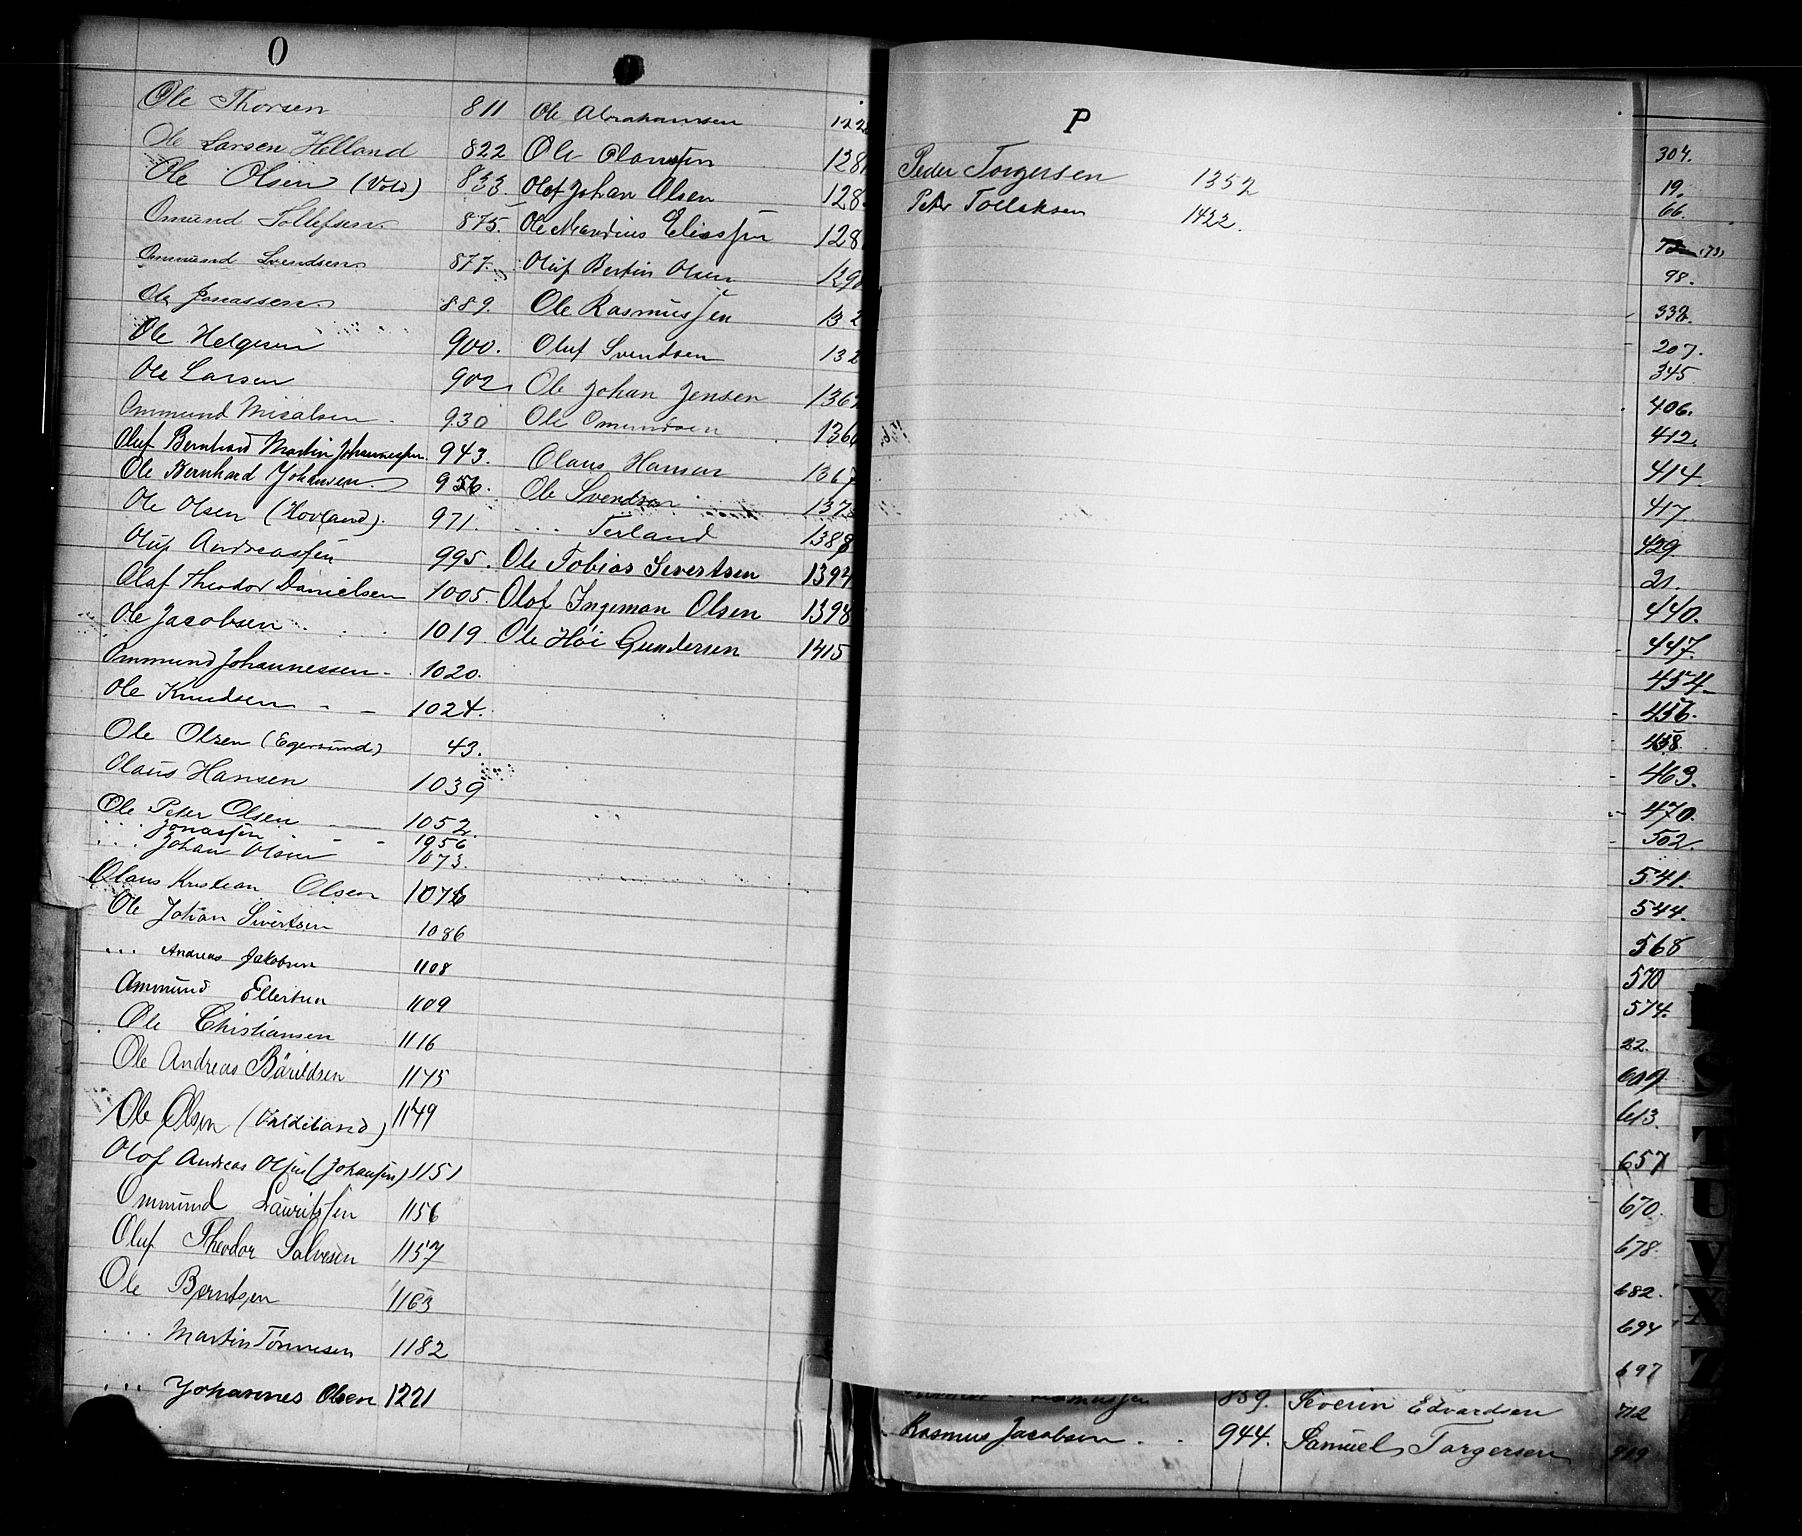 O
Ole Thorsen 811
Ole Larsen Helland 822
Ole Olsen (Vold) 833
Omund Tollefsen 875.
Ommund Svendsen 877.
Ole Jonassen 889.
Ole Helgesen 900.
Ole Larsen 902
Ommund Micalsen 930
Oluf Bernhard Martin Johannessen 943.
Ole Bernhard Johansen 956.
Ole Olsen (Hovland). 971.
Oluf Andreassen 995.
Olaf Theodor Danielsen 1005.
Ole Jacobsen 1019.
Ommund Johannessen 1020.
Ole Knudsen 1024.
Ole Olsen (Egersund) 43.
Olaus Hansen 1039
Ole Peter Olsen 1052.
... Jonassen 1056
... Johan Olsen 1073.
Olaus Kristian Olsen 1076
Ole Johan Sivertsen 1086
... Andreas Jakobsen 1108
Ommund Ellertsen 1109
Ole Christiansen 1116
Ole Andreas Bårildsen 1145
Ole Olsen 1149
Olof Andreas Olsen (Johansen) 1151
Ommund Lauritssen 1156
Oluf Theodor Salvesen 1157
Ole Berntsen 1163
... Martin Tønnesen 1182
... Johannes Olsen 1221
Ole Abrahamsen 122
Ole Olaussen 128
Olof Johan Olsen 128
Ole Mandius Eliassen 128
Oluf Bertin Olsen 129
Ole Rasmussen 132
Oluf Svendsen 132
Ole Johan Jensen 136
Ole Omundsen 136
Olaus Hansen 1367
Ole Svendsen 137
... Terland 138
Ole Tobias Sivertsen 1394
Olof Ingeman Olsen 1398
Ole Høi Gundersen 1415
P
Peder Torgersen 1352
Peter Tollaksen 1422.
304.
19.
66.
72 (73)
98.
332.
207.
345
406.
412.
414.
417.
429.
21.
440.
447.
454
456.
458
463.
470.
502.
541.
544.
568
570
574.
22.
609
613.
657
670.
678.
682.
694
697
712
S
T
U
V
X
Z
859. Severin Edvardsen
Rasmus Jacobsen 944. Samuel Torgersen